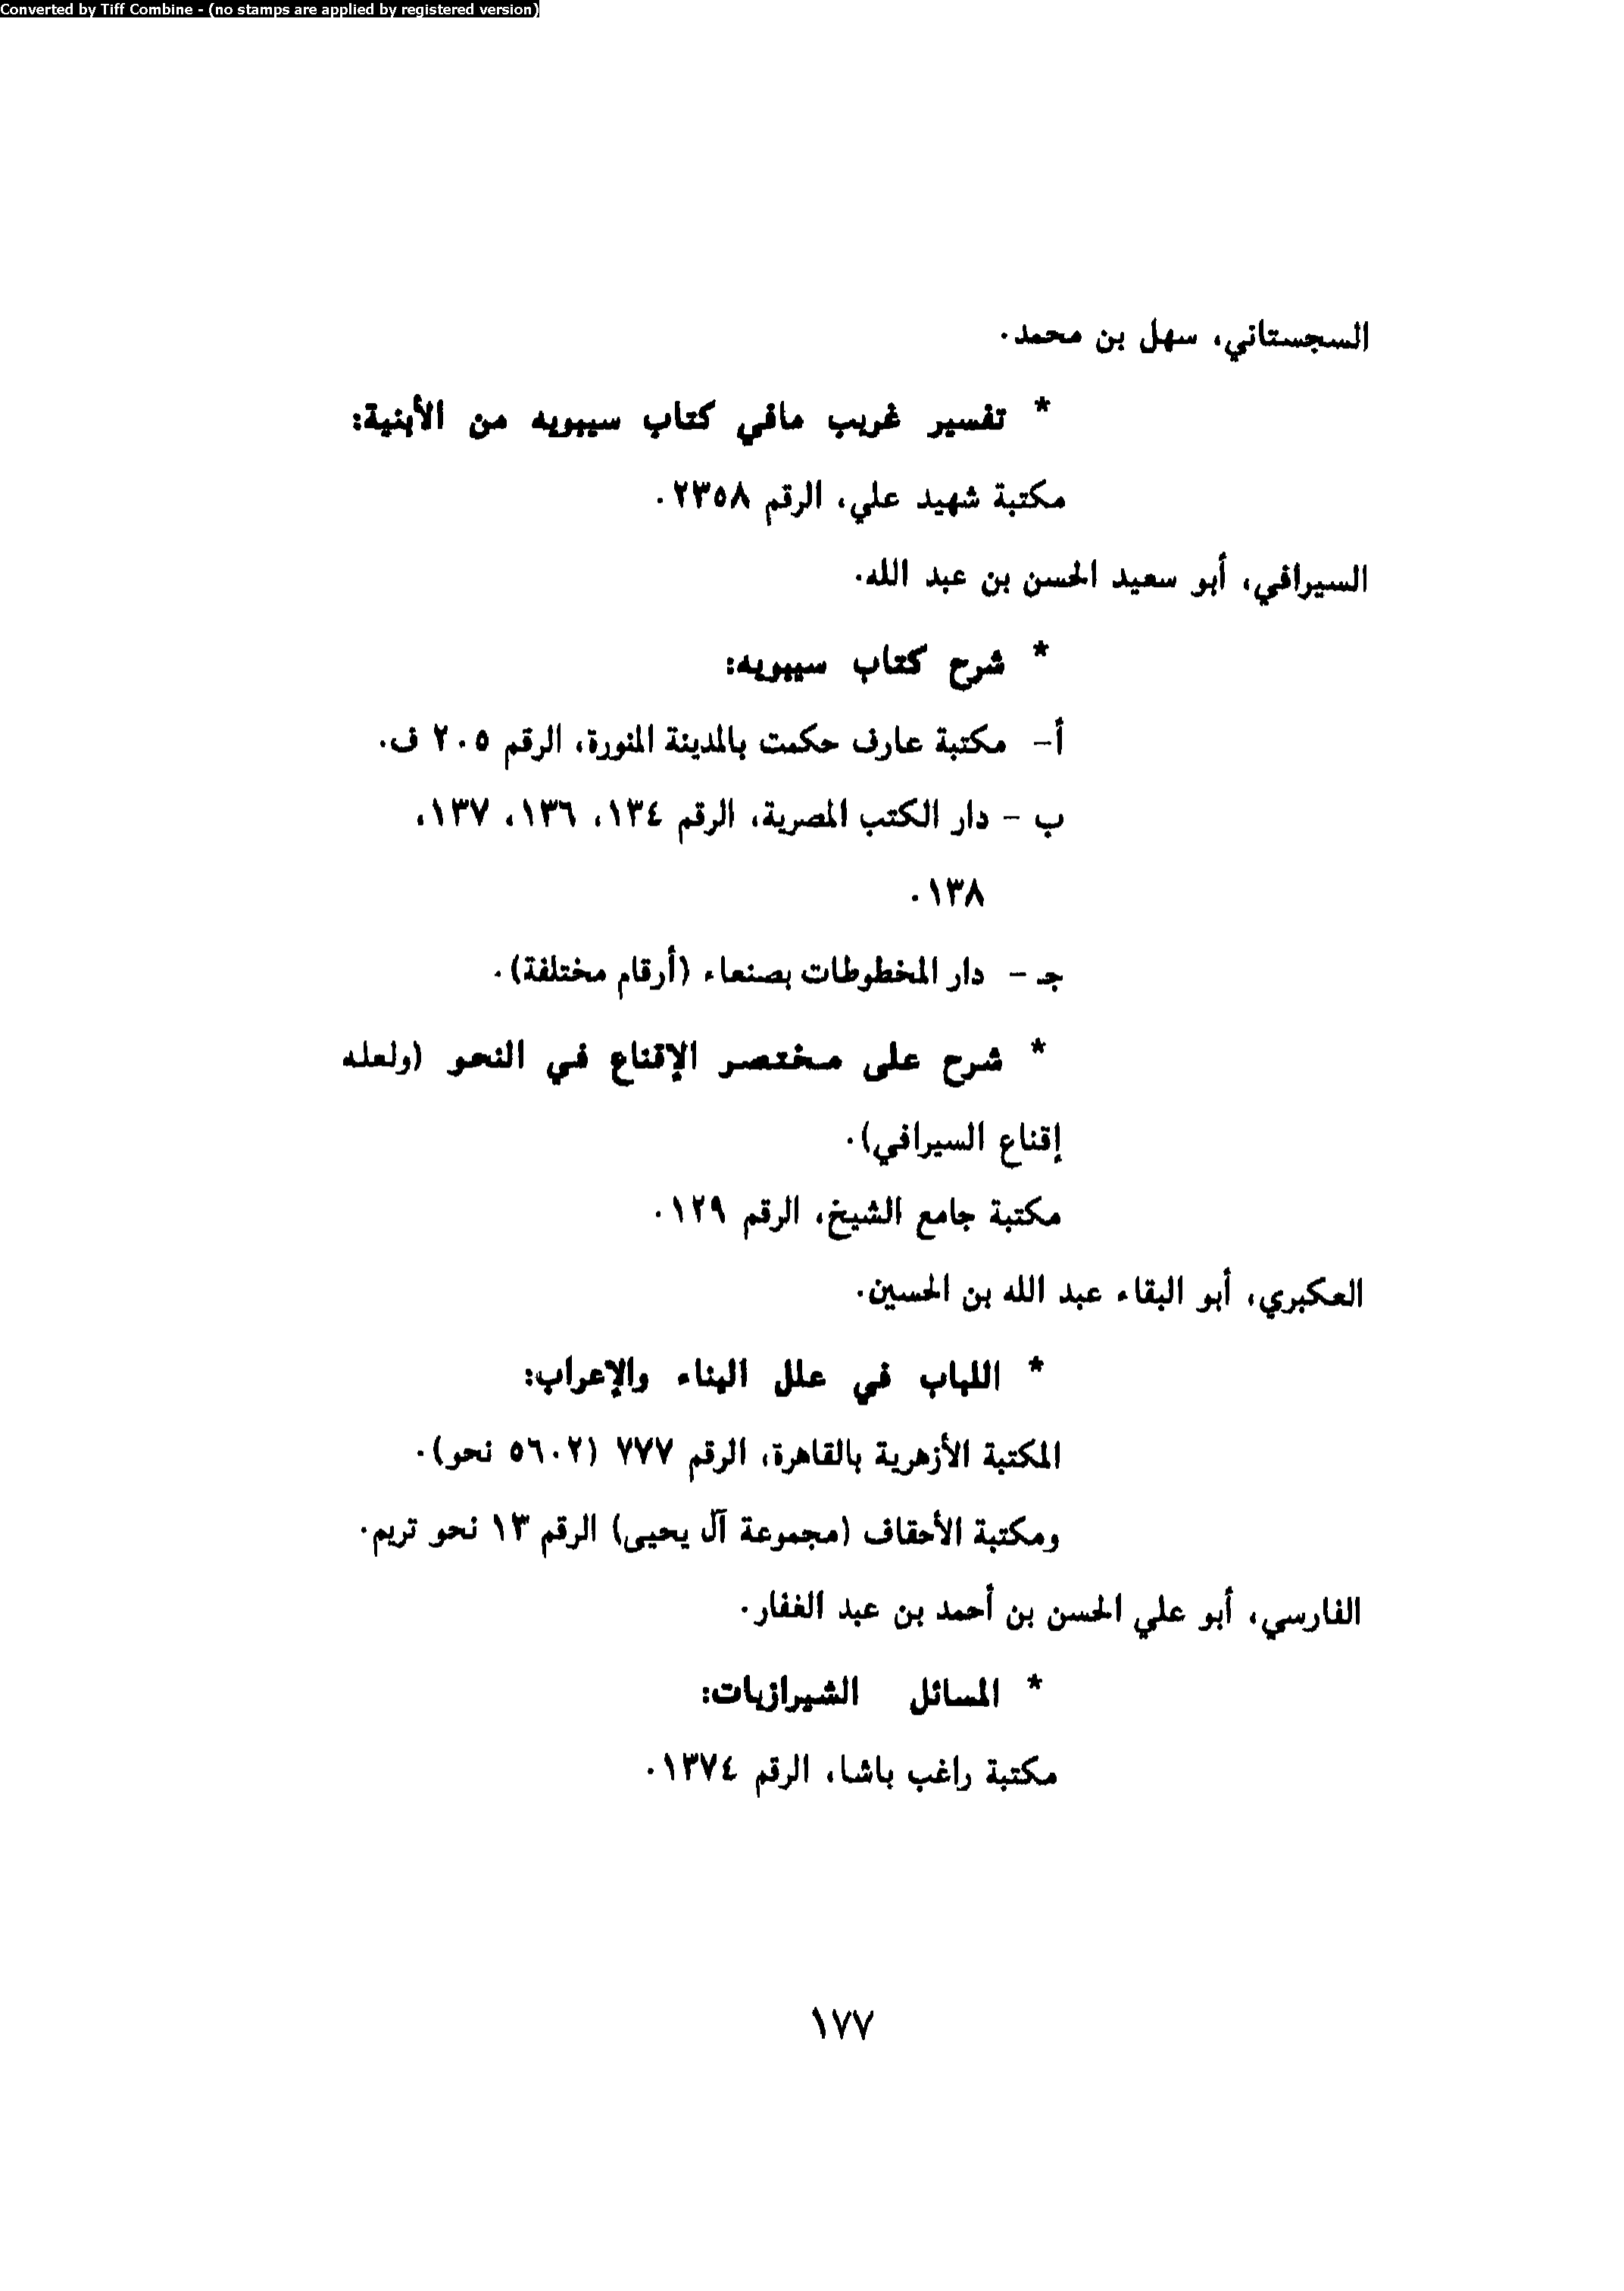 Converted by Tiff Combine - (no stamps are applied by registered version)
السجستاني، سهل بن محمد.
* تفسير غريب مافي كتاب سيبويه من الأبنية:
مكتبة شهيد علي، الرقم ٢٣٥٨.
السيرافي، أبو سعيد الحسن بن عبد الله.
* شرح كتاب سيبويه:
أ- مكتبة عارف حكمت بالمدينة المنورة، الرقم ٢٠٥ ف.
ب - دار الكتب المصرية، الرقم ١٣٤، ١٣٦، ١٣٧،
١٣٨.
جـ - دار المخطوطات بصنعاء (أرقام مختلفة).
* شرح على مختصر الإقناع في النحو (ولعله
إقناع السيرافي).
مكتبة جامع الشيخ، الرقم ١٢٩.
العكبري، أبو البقاء عبد الله بن الحسين.
* اللباب في علل البناء والإعراب:
المكتبة الأزهرية بالقاهرة، الرقم ٧٧٧ (٥٦٠٢ نحو).
ومكتبة الأحقاف (مجموعة آل يحيى) الرقم ١٣ نحو تريم.
الفارسي، أبو علي الحسن بن أحمد بن عبد الغفار.
* المسائل الشيرازيات:
مكتبة راغب باشا، الرقم ١٣٧٤.
١٧٧